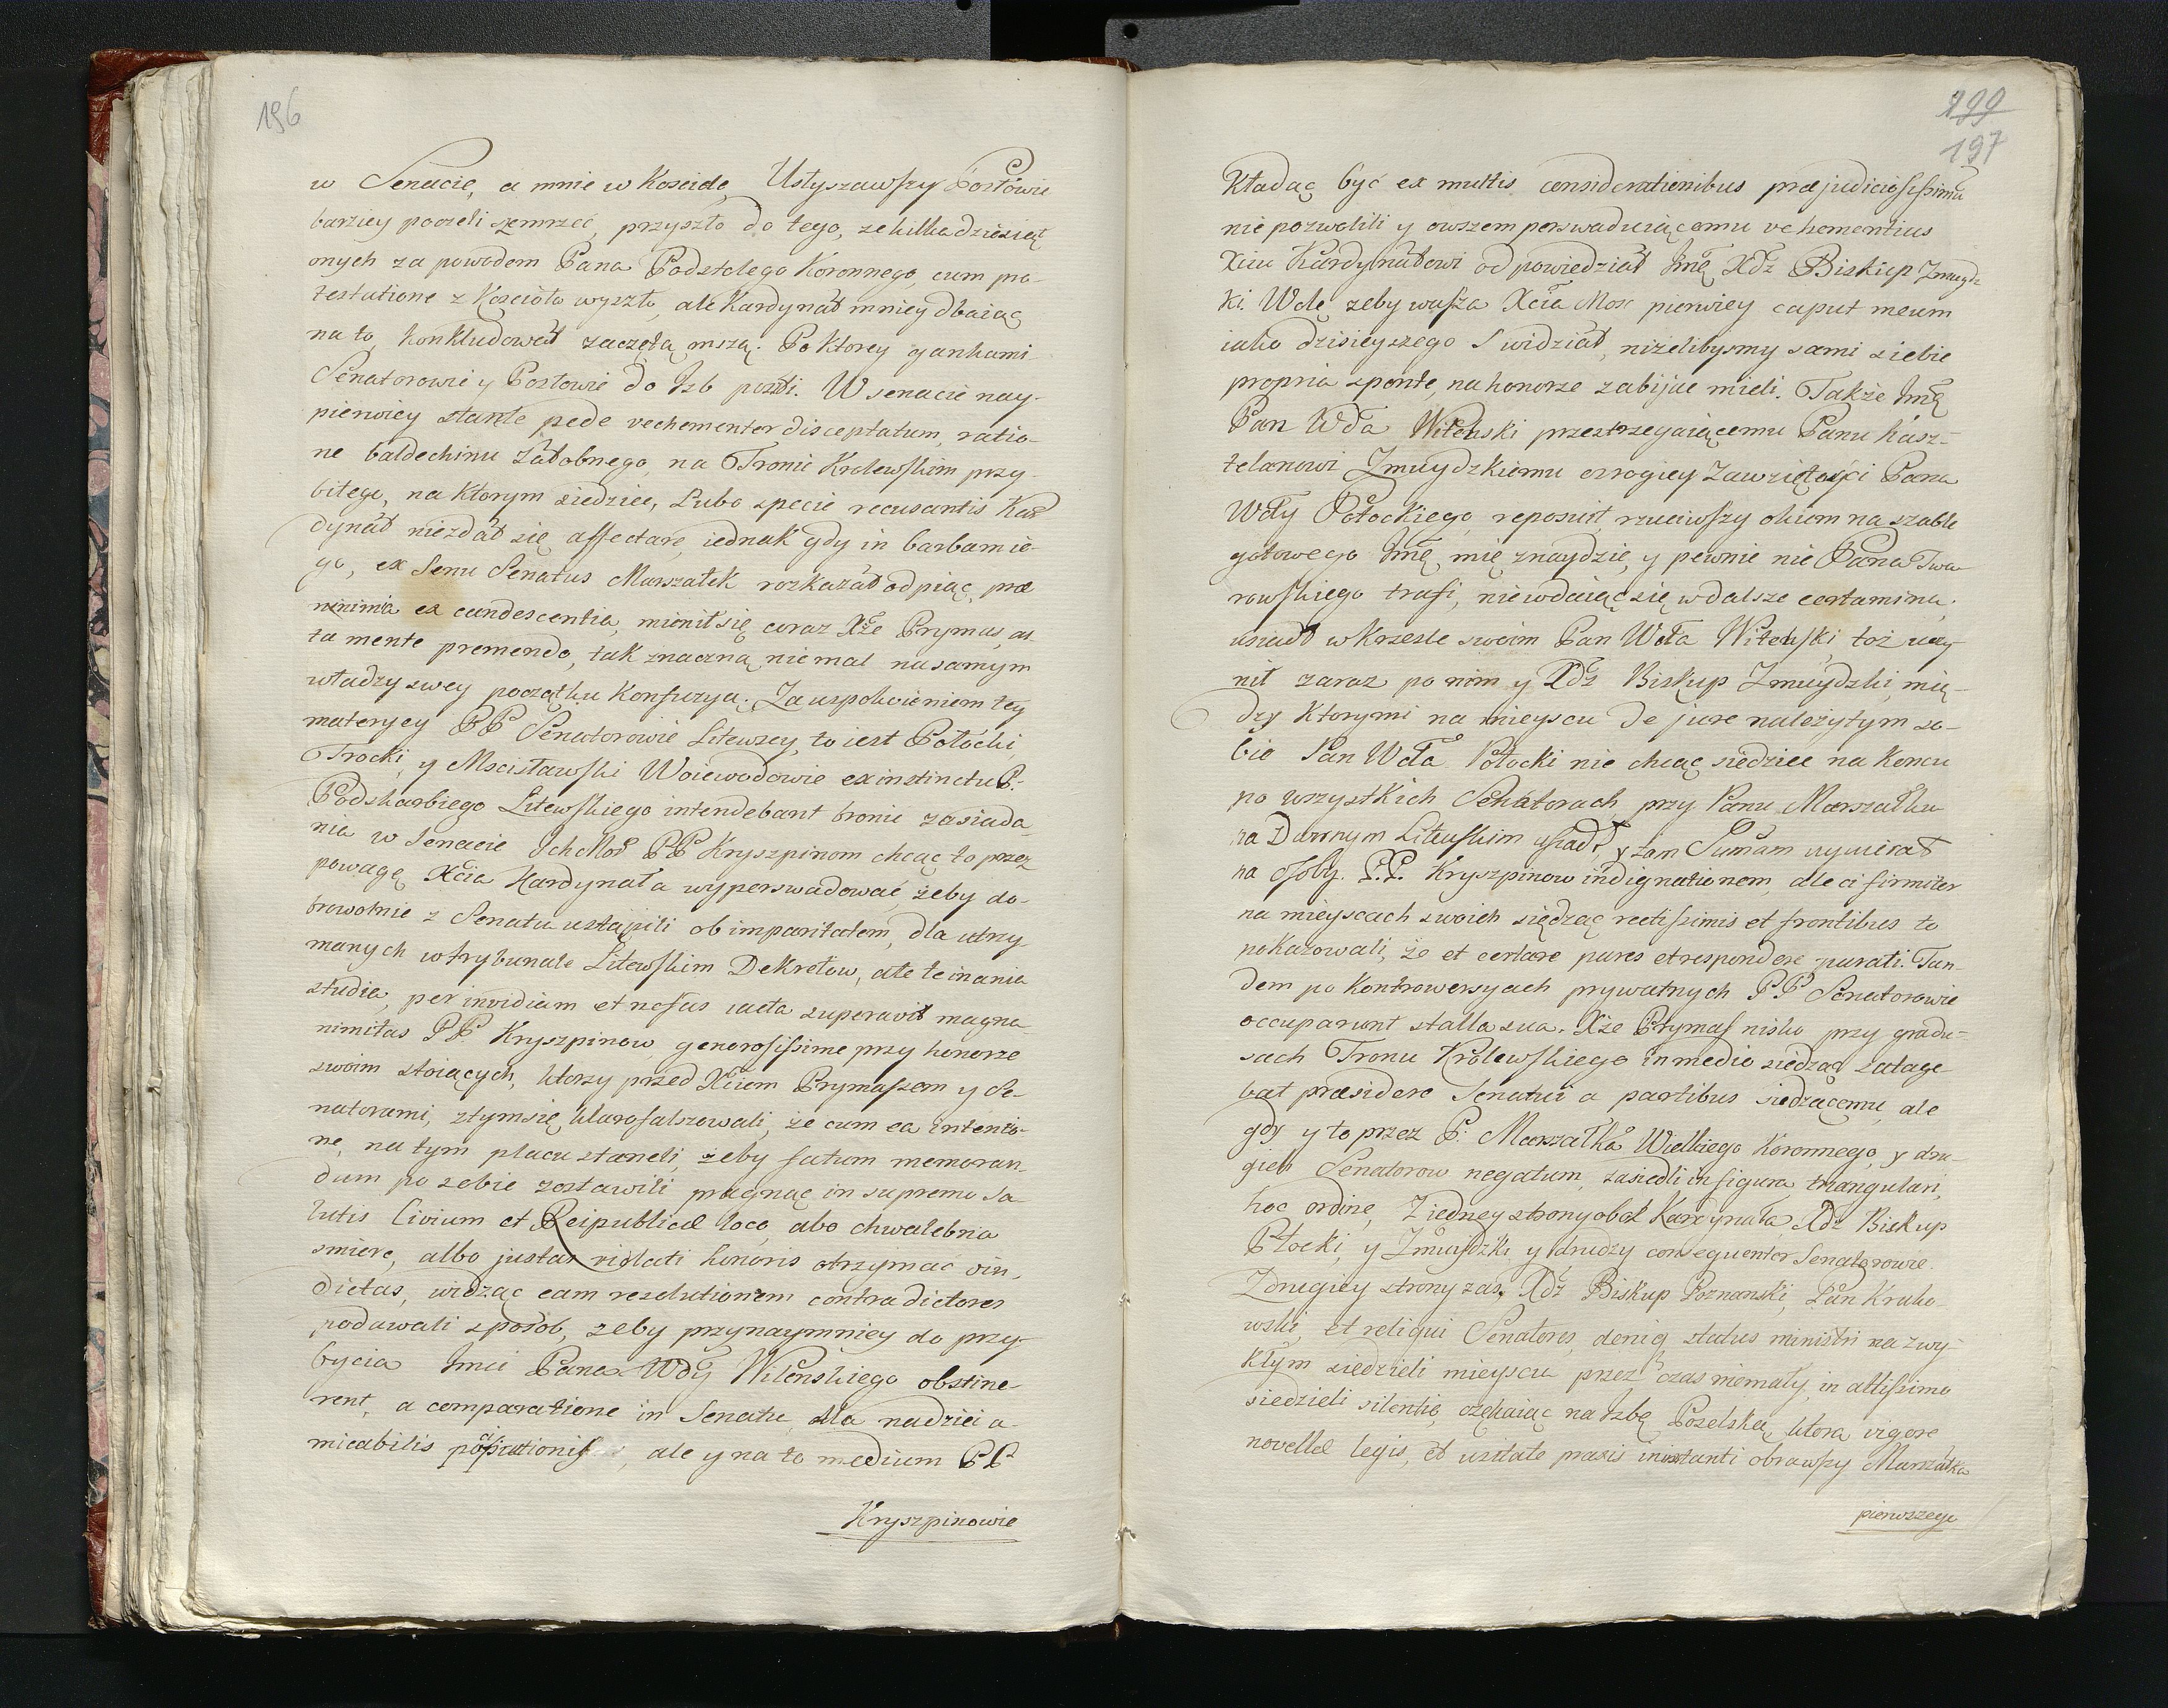 196
w Senacie, a mnie w Kosciele, Usłyszawszy Posłowie
barziey poczeli szemrzeć, przyszło do tego, ze kilkadziesiąt
onych za powodem Pana Podstolego Koronnego, cum pro-
testatione z Kościoła wyszło, ale Kardynał mniey dbaiąc
na to, konkludował zaczętą mszą. Po ktorey gankami
Senatorowie y Posłowie do Izb poszli. W senacie nay-
pierwiey stante pede vechementer disceptatum, ratio-
ne baldechinu żałobnego, na Tronie Krolewskim przy-
bitego, na ktorym siedziec, Lubo specie recusantis Kar-
dynał niezdał się affectare, iednak gdy in barbam ie-
go, ex Sensu Senatus Marszałek rozkazał odpiąc, præ
nimia ex candescentia, mienił się coraz Xże Prymas, al-
ta mente premendo, tak znaczną niemal na samym
władzy swey początku Konfuzya. Za uspokoieniem tey
materyey PP Senatorowie Litewscy, to iest Połocki,
Trocki, y Mscisławski Woiewodowie ex instinctu P.
Podskarbiego Litewskiego intendebant bronic zasiada-
nia w Senacie Ich Mos PP Kryszpinom chcąc to przez
powagę Xcia Kardynała wyperswadować, żeby do-
browolnie z Senatu ustąpili ob imparitatem, dla utrzy-
manych w trybunale Litewskim Dekretow, ale te inania
studia, per invidiam et nefas iacta superavit magna-
nimitas PP Kryszpinow, generosissime przy honorze
swoim stoiących, ktorzy przed Xciem Prymasem y Se-
natorami, z tym się klarosalzowali, że cum ea intentio-
ne, na tym placu staneli, żeby fatum memoran-
dum po sobie zostawili pragnąc in supremo Sa-
lutis Civium et Reipublicæ loco, abo chwalebna
smierc, albo justas violati honoris otrzymać vin-
dictas, widząc eam resolutionem contradictores
podawali sposob, zeby przynaymniey do przy-
bycia Jmci Pana Wdy Wilenskiego obstine-
rent, a comparatione in Senatu, dla nadziei a-
micabilis , ale y na to medium PP
Kryszpinowie
199
197
Kładąc być ex multis considerationibus præjudiciosissimu
nie pozwolili y owszem perswaduiącemu vehementius
Xciu Kardynałowi odpowiedział Jmę Xdz Biskup Zmuydz-
ki. Wolę zeby wasza Xcia Mosc pierwiey caput meum
iako dzisieyszego S widział, niżelibysmy sami siebie
propria sponte, na honorze zabijac mieli. Także Jmę
Pan Wda Witenski przestrzegaiącemu Panu Kasz-
telanowi Zmuydzkiemu o srogiey zawziętości Pana
Wdy Połockiego, reposuit, rzuciwszy okiem na szable
gotowego Jmę mię znaydzie, y pewnie nie Pana Twa-
rowskiego trafi, niewdaiąc się w dalsze certamina.
usiadł w Krzesle swoim Pan Wda Witenski, toż uczy-
nił zaraz po nim y Xdz Biskup Zmuydzki, mię-
dzy ktorymi na mieyscu de jure należytym so-
bie Pan Wda Połocki nie chcąc siedziec na Koncu
po wszystkich Senatorach przy Panu Marszałku
na Dawnym Litewskim usiadł, y tam Sumam wywierał
na osoby P.P. Kryszpinow indignationem, ale ci firmiter
na mieyscach swoich siędząc rectissimis et frontibus to
pokazowali, że et certare pares et respondere parati. Tan-
dem po Kontrowersyach prywatnych P.P Senatorowie
occuparunt stalla sua. Xże Prymas nisko przy gradu-
sach Tronu Krolewskiego in medio siedząc satage-
bat præsidere Senatui a partibus siedzącemu, ale
gdy y to przez P. Marszałka Wielkiego Koronnego, y dru-
gich Senatorow negatum, zasiedli in figura triangulari,
hoc ordine, Z iedney strony obok Kardynała, Xdz Biskup
Płocki, y Zmuydzki, y drudzy consequenter Senatorowie.
Z drugiey strony zas, Xdz Biskup Poznanski, Pan Krako-
wski, et reliqui Senatores, deniq status ministri na zwy-
kłym siedzieli mieyscu przez czas niemały, in altissimo
siedzieli silentio, czekaiąc na Izbę Poselską, ktora vigore
novellæ legis, et usitate praxis in instanti obrawszy Marszałka
pierwszego